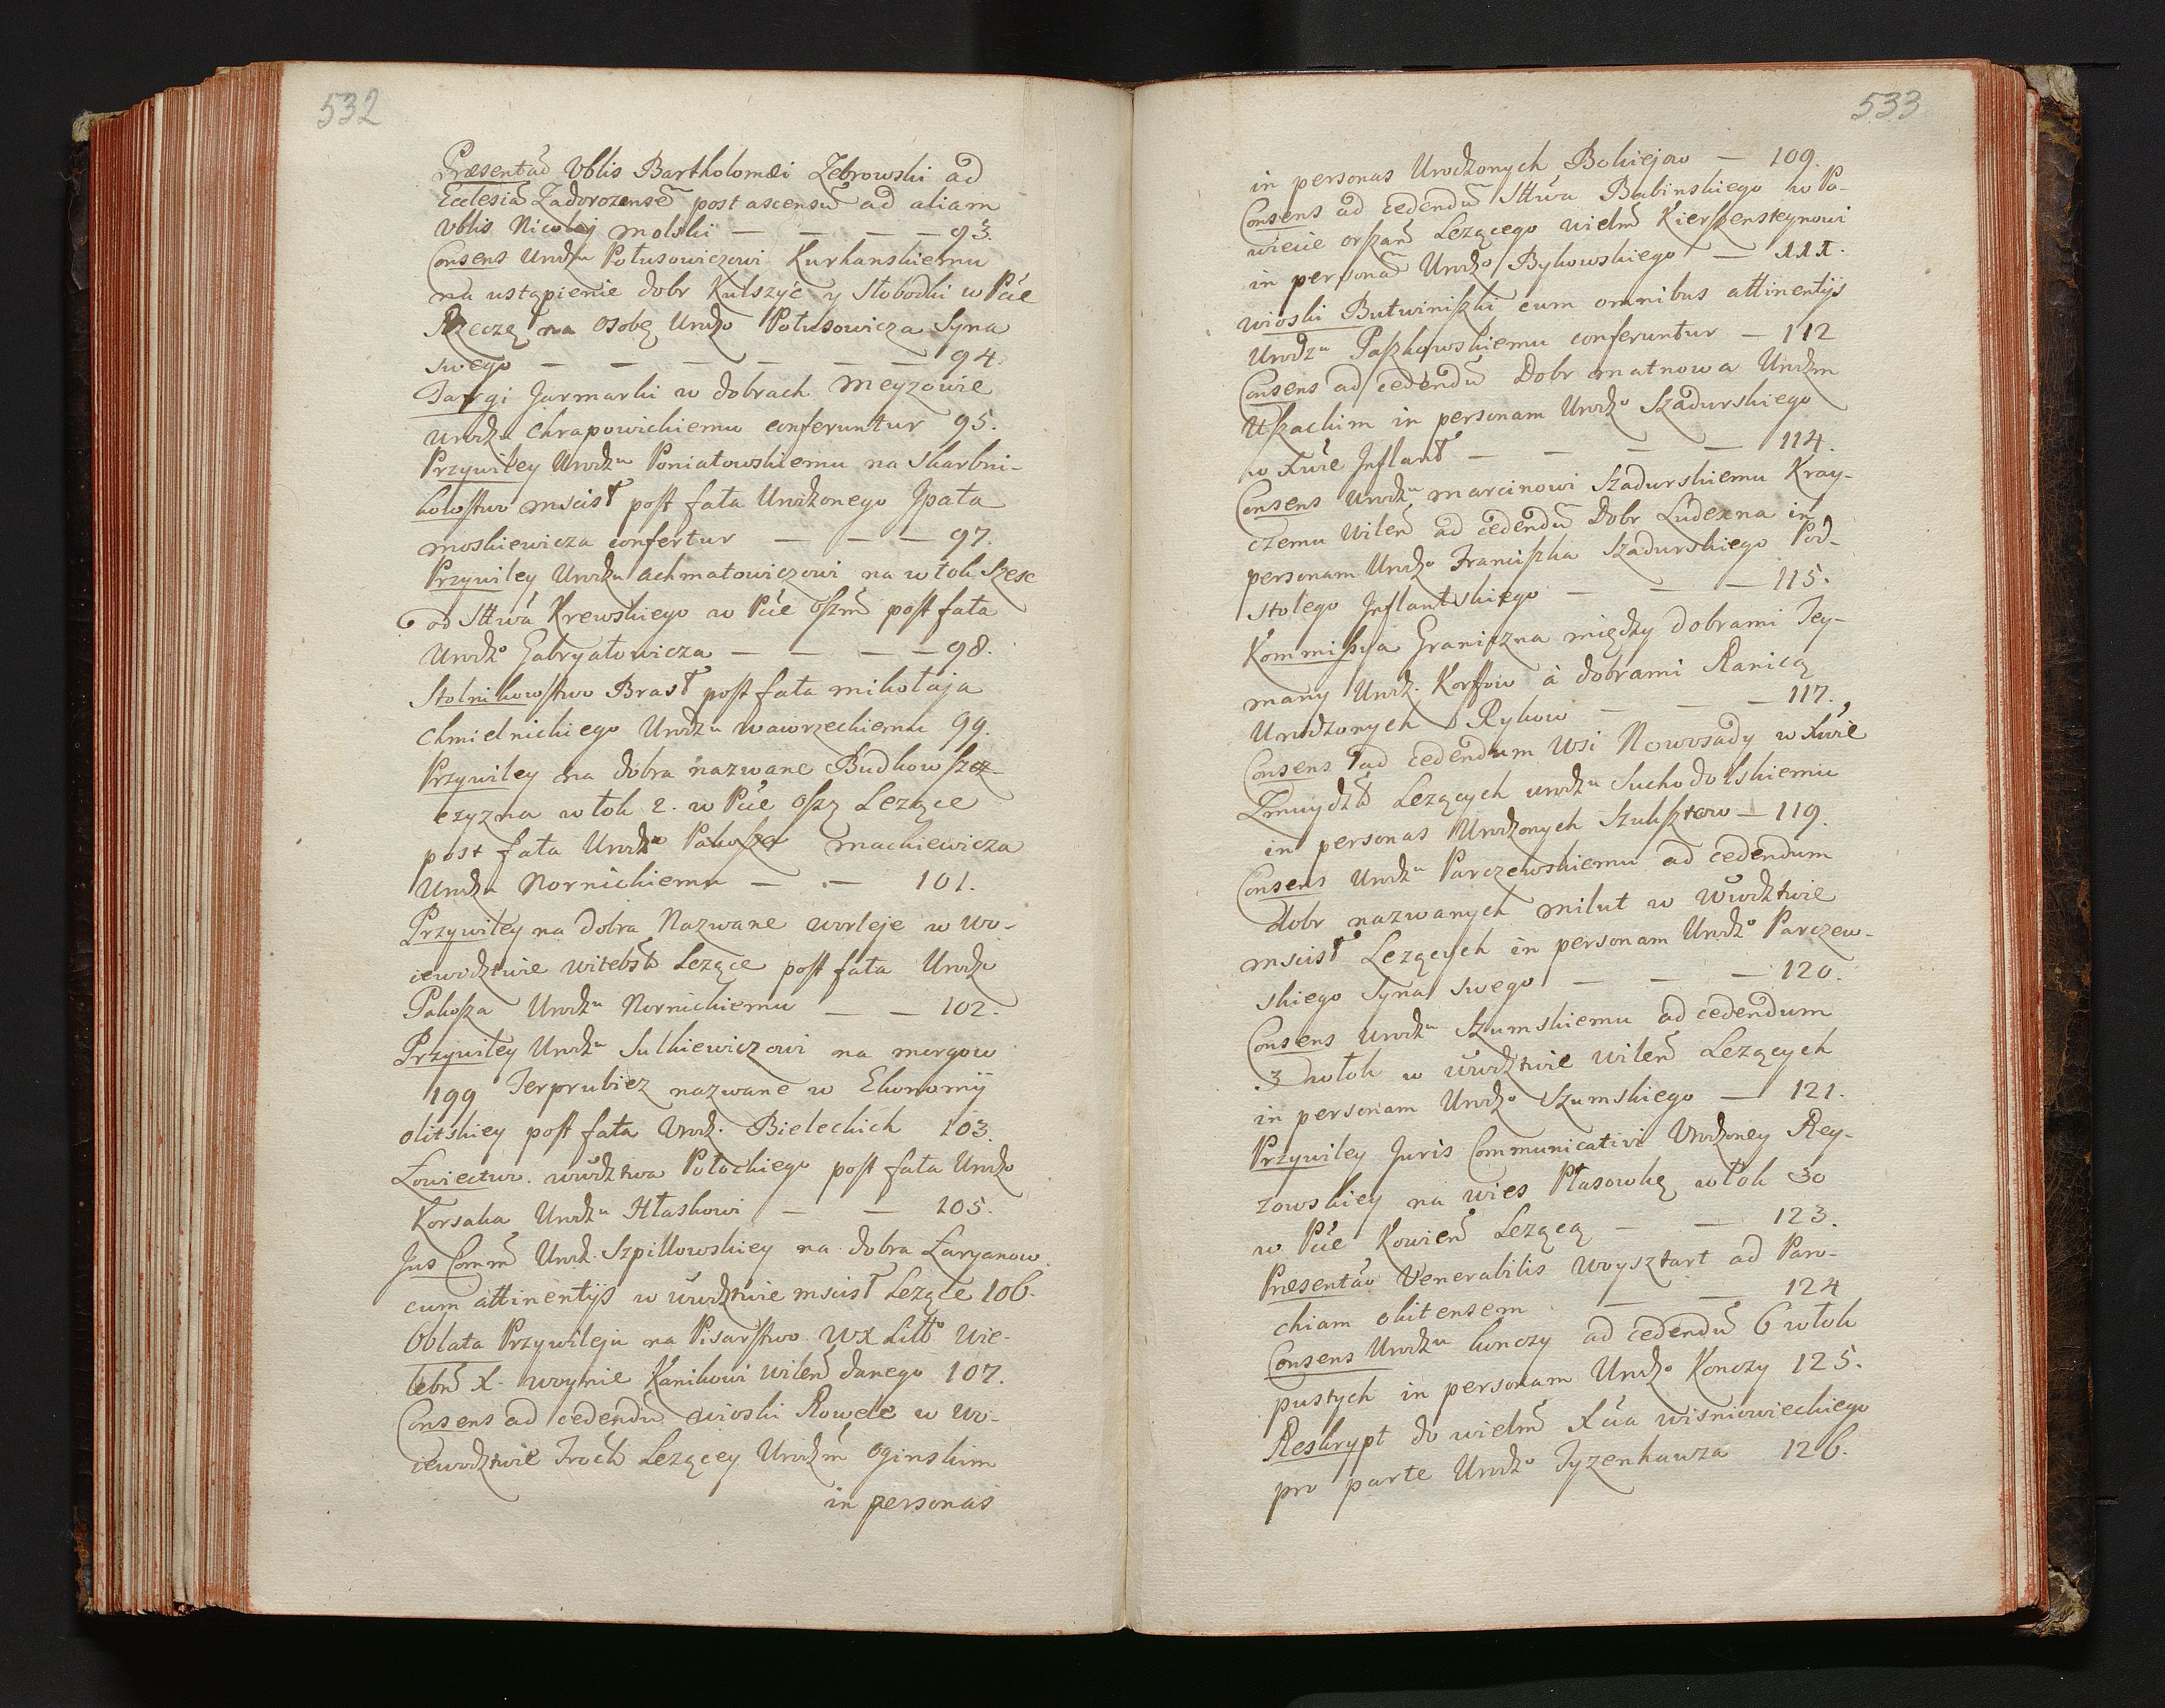 532
Præsentaõ Vblis Bartholomæi Zebrowski ad
Ecclesiã Zadorozensẽ post ascensũ ad aliam
Vblis Nicolaj Molski — — — — 93.
Consens Urodzu Połusowiczowi Kurhanskiemu
na ustąpienie dobr Kulszyc y Słobodki w Pcie
Rzeczą na osobę Urodzo Połusowicza Syna
swego — — — — — — 94.
Targi Jarmarki w dobrach Meyzowie
Urodzu Chrapowickiemu conferuntur 95.
Przywiley Urodzu Poniatowskiemu na Skarbni-
kowstwo mscisł post fata Urodzonego Jpata
Moskiewicza confertur — — — 97.
Przywiley Urodzu Achmatowiczowi na włok Szesc
6 od Sttwa Krewskiego w Pcie Oszm post fata
Urodzo Gabryałowicza — — — — 98.
Stolnikowstwo Brasł post fata mikołaja
Chmielnickiego Urodzu Wawrzeckiemu 99.
Przywiley na dobra nazwane Budkowszcz-
czyzna włok 2. w Pcie Osz Leząće
post fata Urodzo Pakosza Mackiewicza
Urodzu Nornickiemu — — 101.
Przywiley na dobra Nazwane worleje w Wo-
iewodztwie witebsk Lezące post fata Urodzo
Pakosza Urodzu Nornickiemu — — 102.
Przywiley Urodzu Sulkiewiczowi na morgow
199 Terprubiez nazwane w Ekonomij
olitskiey post fata Urodz. Bieleckich 103.
Łowiectwo. wwdztwa Połockiego post fata Urodzo
Korsaka Urodzu Hłaskowi — — 105.
Jus Comm Urodz. Szpilłowskiey na dobra Łaryanow
cum attinentijs w wwdztwie mscisł Lezące 106.
Oblata Przywileju na Pisarstwo WX Litto Wie-
lebn X. woynie Kanikowi wilen danego 107.
Consens ad cedendũ wioski Rowele w Wo-
iewodztwie Trock Lezącey Urodzm Oginskim
in personas
533
in personas Urodzonych Bokiejow — 109.
Consens ad cedendũ Sttwa Babinskiego w Po-
wiecie orszań Lezącego wielm Kierszensteynowi
in personã Urodzo Bykowskiego — 111.
wioski Butwiniszki cum omnibus attinentijs
Urodzu Paszkowskiemu conferuntur — 112
Consens ad cedendũ Dobr matnowa Urodzm
Uszackim in personam Urodzo Szadurskiego
w Xwie Jnflant — — — — 114.
Consens Urodzu marcinowi Szadurskiemu Kray-
czemu Wilen ad cedendũ Dobr Ludexna in
personam Urodzo Franciszka Szadurskiego Pod-
stolego Jnflantskiego — — — 115.
Kommissya Graniczna między dobrami Tey-
many Urodz. Korffow á dobrami Ranicą
Urodzonych Rykow — — — 117.
Consens ad cedendum Wsi Nowosady w Xwie
Zmuydzk Lezących urodzu Suchodolskiemu
in personas Urodzonych Szuksztow — 119.
Consens Urodzu Parczewskiemu ad cedendum
dobr nazwanych milut w wwdztwie
mscisł Lezących in personam Urodzo Parczew-
skiego Syna swego — — — 120.
Consens Urodzu Szumskiemu ad cedendum
.3 włok w wwdztwie wilen Lezących
in personam Urodzo Szumskiego — 121.
Przywiley Juris Communicativi Urodzoney Rey-
zowskiey na wies Płasowkę włok 30
w Pcie Kowien Lezącą — — 123.
Præsentão Venerabilis Woysztart ad Paro-
chiam olitensem — — 124
Consens Urodzu konczy ad cedendũ 6 włok
pustych in personam Urodzo Konczy 125.
Reskrypt do wielm Xcia wisniowieckiego
pro parte Urodzo Tyzenhauza 126.